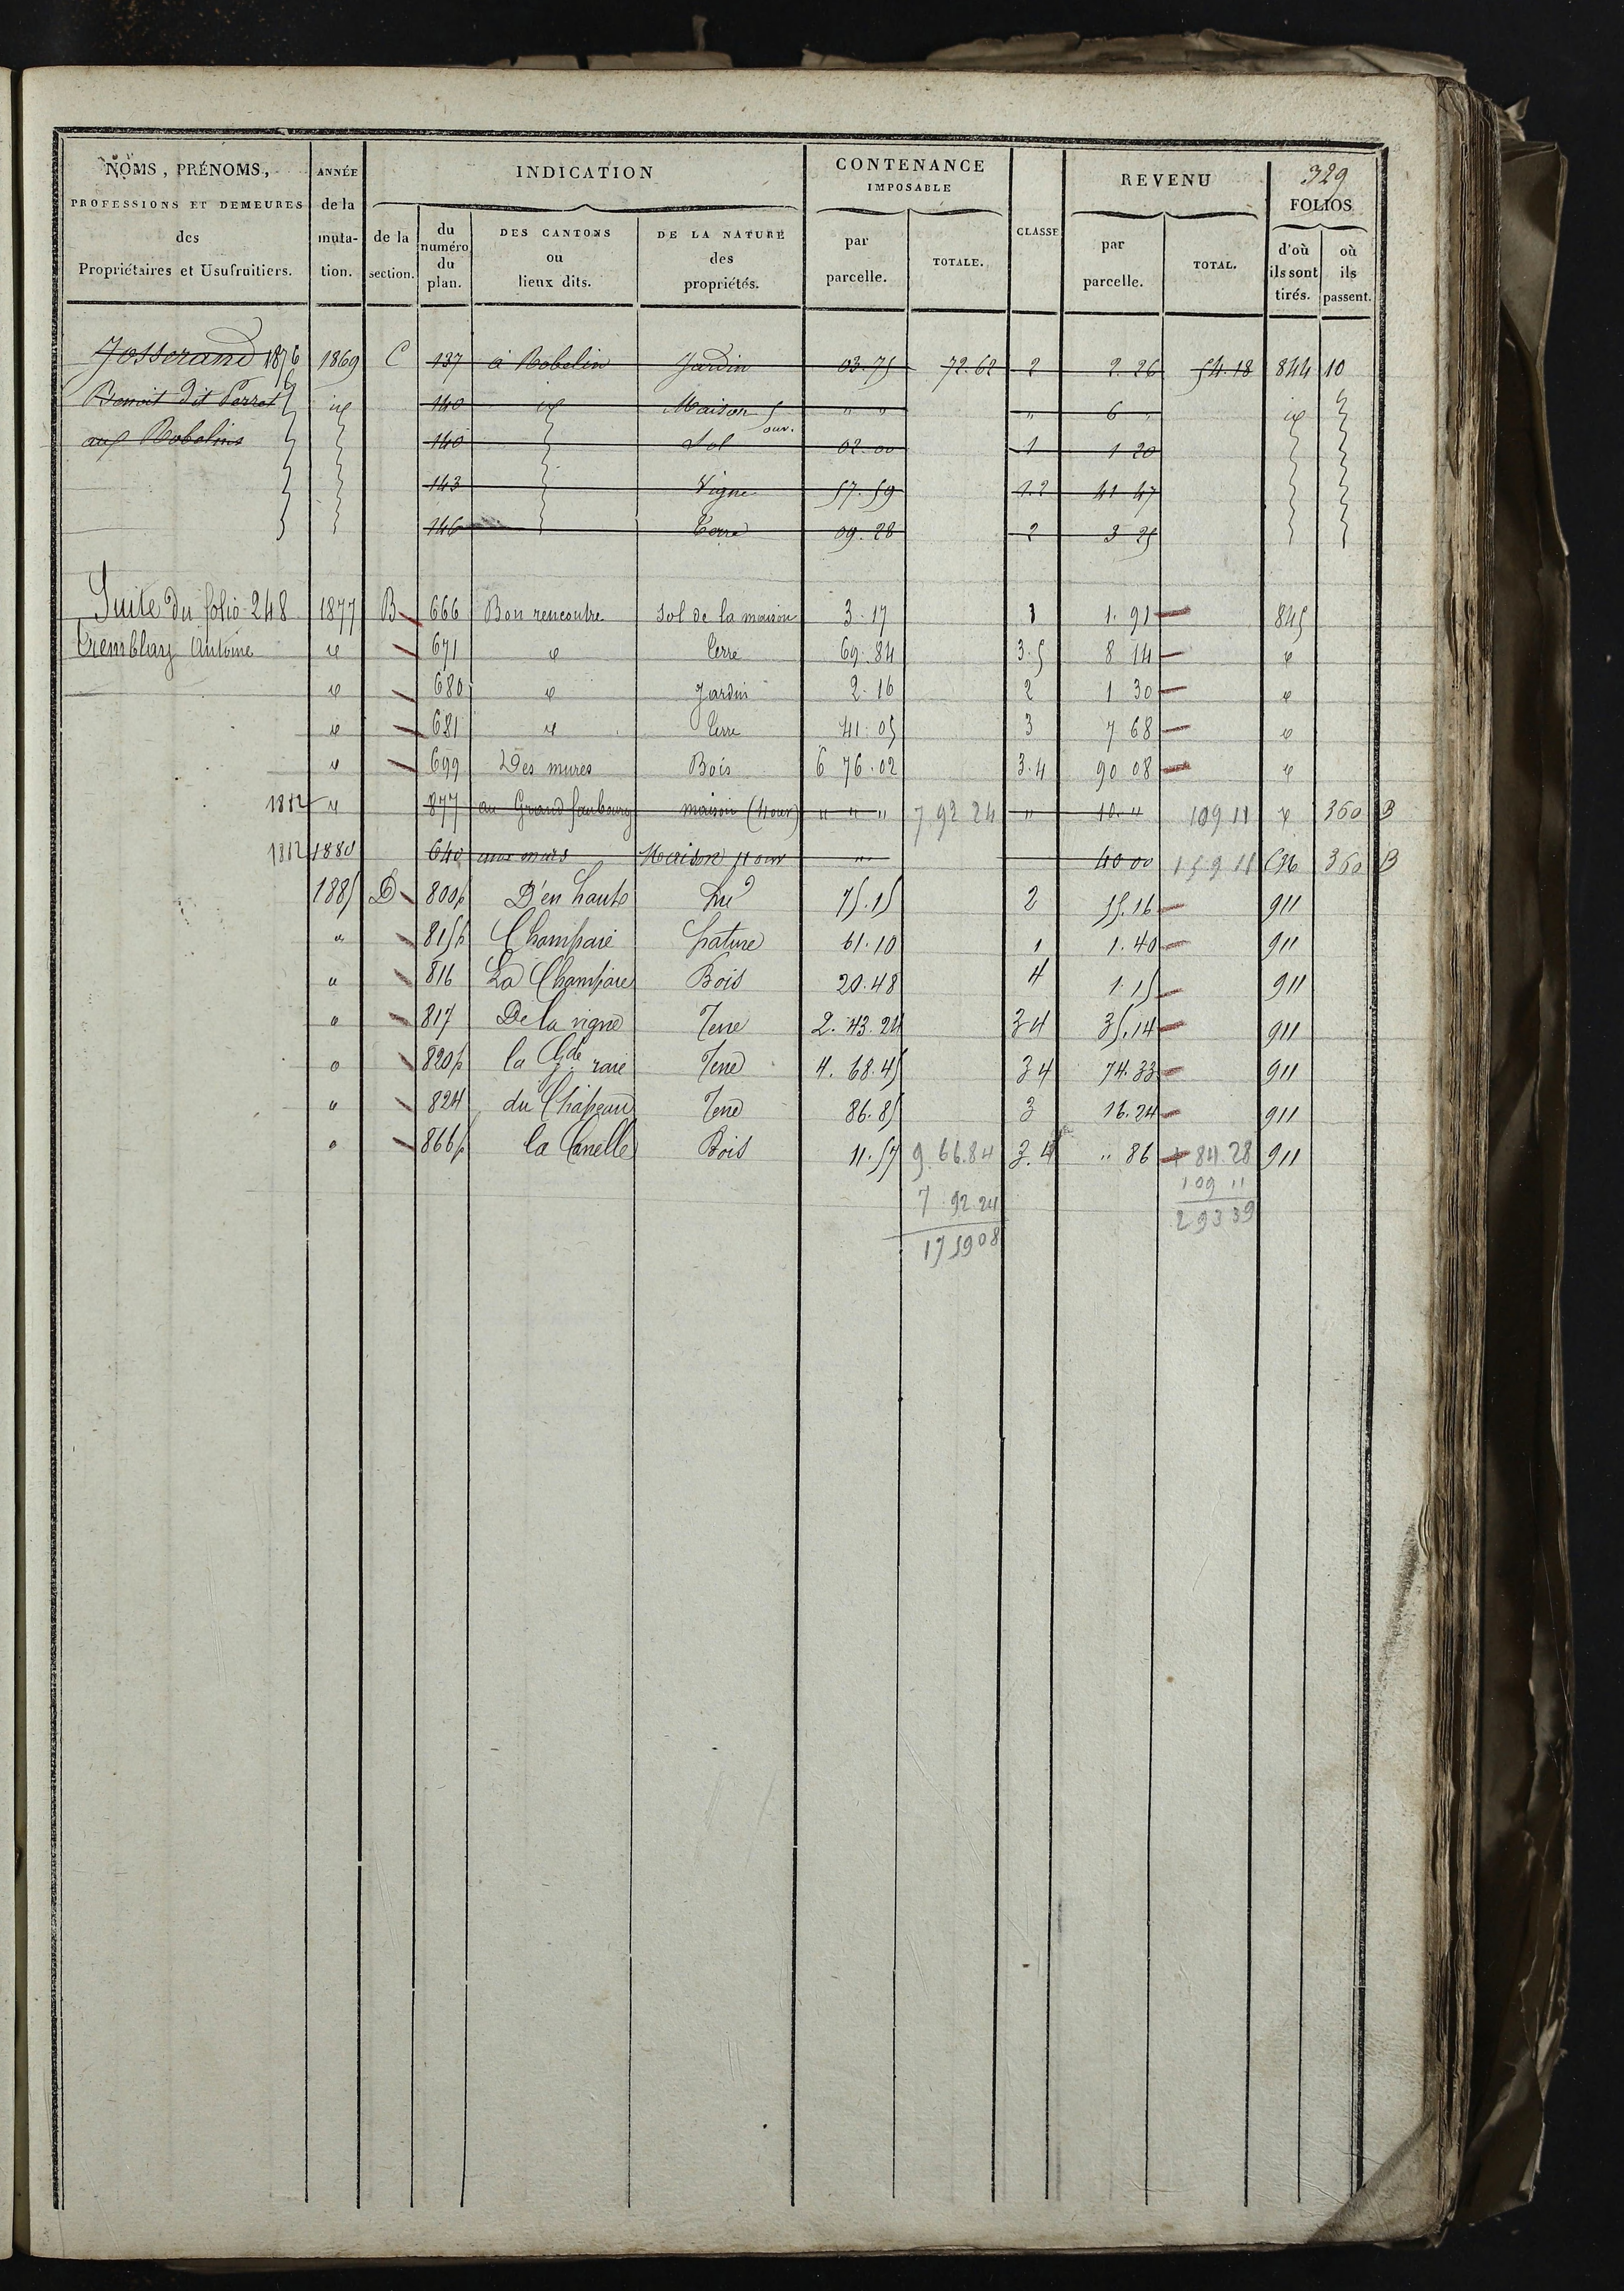 329
NOMS, PRÉNOMS, PROFESSIONS ET DEMEURES des Propriétaires et Usufruitiers.
ANNÉE de la muta-tion.
INDICATION
de la section.
du numéro du plan.
DES CANTONS ou lieux dits.
DE LA NATURE des propriétés.
CONTENANCE IMPOSABLE
par parcelle.
TOTALE.
CLASSE
REVENU
par parcelle.
TOTAL.
FOLIOS
d'où ils sont tirés.
où ils passent.
Josserand 1876 1869 C 137 à Robelin Jardin 03.75 72.62 2 2.26 54.18 844 10
Benoit dit Perrot id 140 id Maison 5 ouv. " " " 6 " id
aux Robelins 140 Sol 02.00 1 1 20
143 Vigne 57.59 1.2 41 47
146 Terre 09.28 2 3 25
Suite du folio 248 1877 B 666 Bon rencontre Sol de la maison 3.17 1 1.91 845
Tremblay Antoine id 671 id Terre 69.84 3.5 8 14 id
id 680 id Jardin 2.16 2 1 30 id
id 681 id Terre 41.05 3 7 68 id
id 699 Des mures Bois 6 76.02 3.4 90 08 id
1882 id 877 au Grand faubourg maison (4 ouv) " " " 7 92 24 " 10 " 109 11 id 360 B
1882 1880 640 aux murs Maison 11 ouv " 40 00 159 11 C96 360 B
1885 D 800p D'en haut Pré 75.15 2 55.16 911
" 815p Champaie Pature 61.10 1 1.40 911
" 816 La Champaie Bois 20.48 4 1.15 911
" 817 De la vigne Terre 2.43.24 3 4 35.14 911
" 820p la Gde raie Terre 4.68.45 3 4 74.33 911
" 824 du Chapeau Terre 86.85 3 16.24 911
" 866p la Canelle Bois 11.57 9.66.84 3.4 " 86 + 84.28 911
7 92 24 109 11
17 5908 293 39